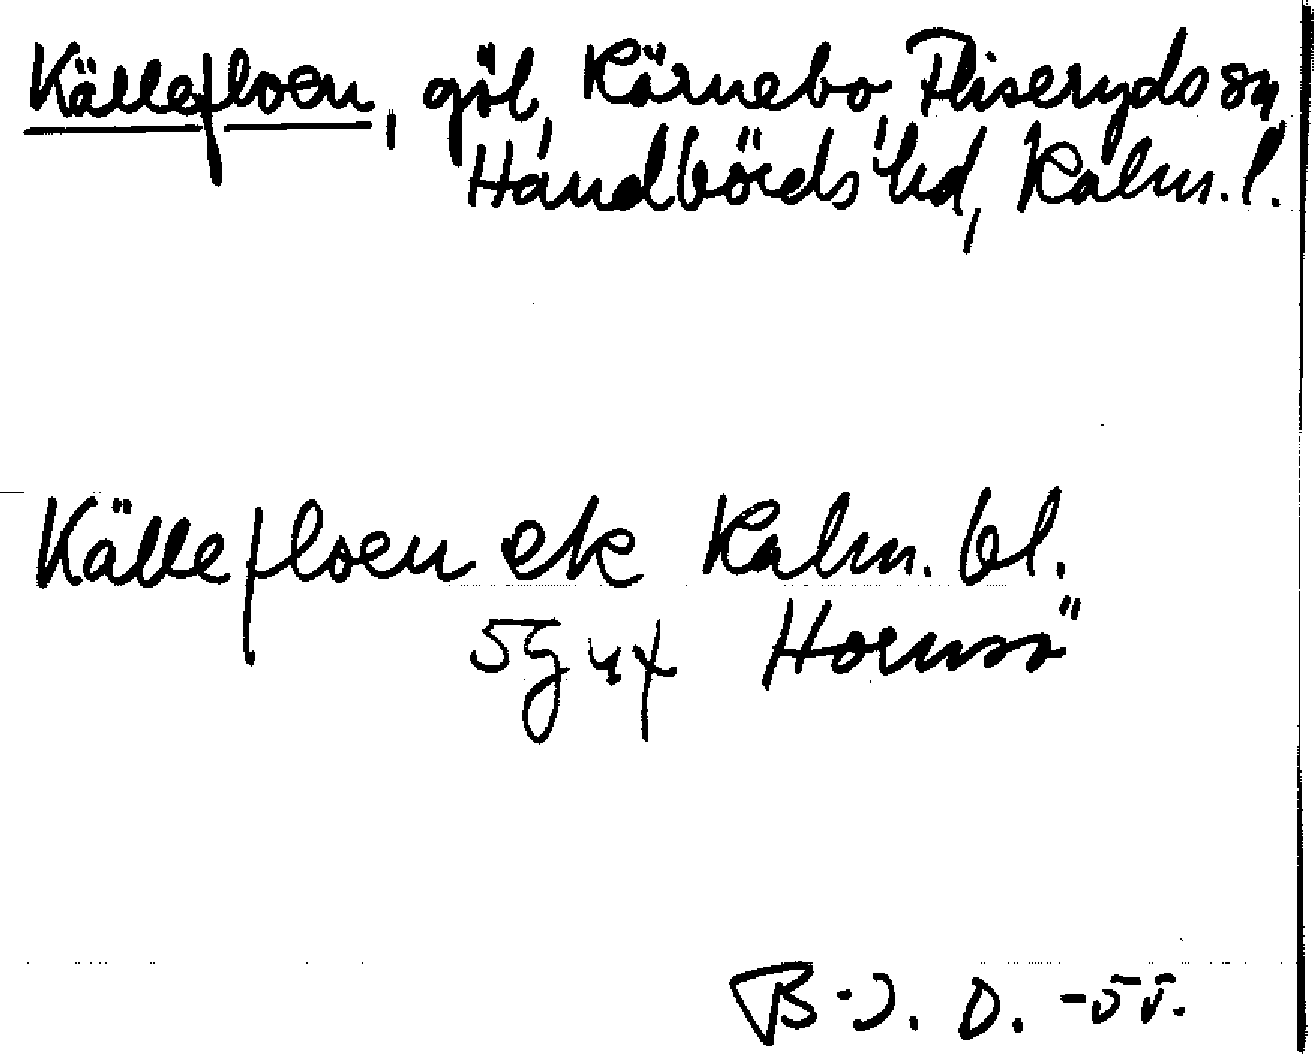 Källefloen, göl, Kärnebo, Fliseryds sn,
Handbörds hd, Kalm. l.
Källefloen ek Kalm. bl.
5g4f Hornsö
B-J. D. -55.